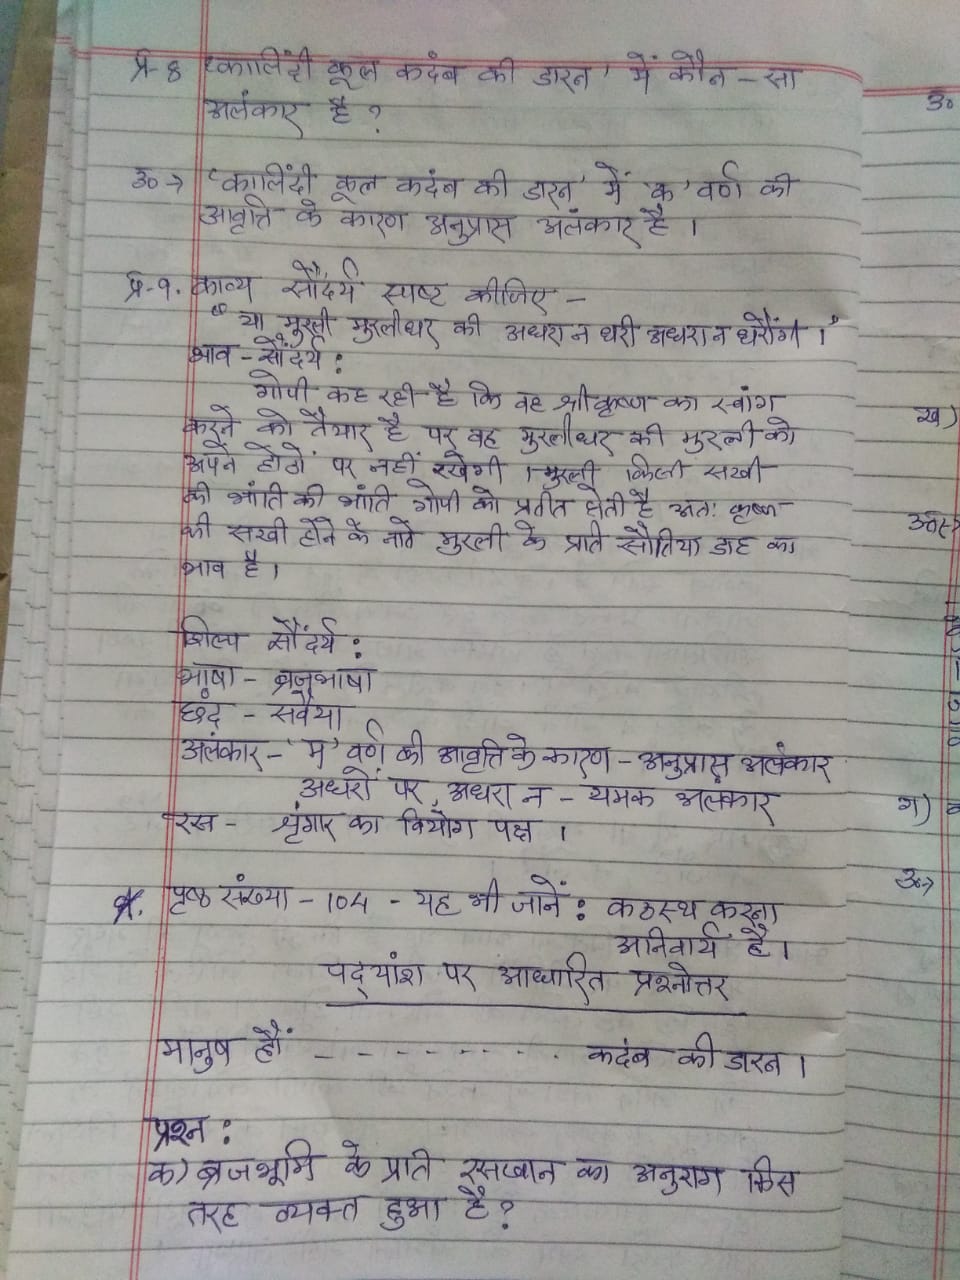 प्र-8 'कालिंदी कूल कदंब की डारन' में कौन-सा
अलंकार है ?
उ०→ 'कालिंदी कूल कदंब की डारन' में 'क' वर्ण की
आवृत्ति के कारण अनुप्रास अलंकार है ।
प्र-९. काव्य सौंदर्य स्पष्ट कीजिए -
"या मुरली मुरलीधर की अधरा न धरी अधरा न धरौंगी ।"
भाव-सौंदर्य :
गोपी कह रही है कि वह श्रीकृष्ण का स्वांग
करने को तैयार है पर वह मुरलीधर की मुरली को
अपने होठों पर नहीं रखेगी । मुरली किसी सखी
की भांति की भांति गोपी को प्रतीत होती है अतः कृष्ण
की सखी होने के नाते मुरली के प्रति सौतिया डाह का
भाव है ।
शिल्प सौंदर्य :
भाषा - ब्रजभाषा
छंद - सवैया
अलंकार - 'म' वर्ण की आवृत्ति के कारण - अनुप्रास अलंकार
अधरों पर, अधरा न - यमक अलंकार
रस - श्रृंगार का वियोग पक्ष ।
पृष्ठ संख्या - 104 - यह भी जानें : कंठस्थ करना
अनिवार्य है ।
पद्यांश पर आधारित प्रश्नोत्तर
मानुष हौं - - - - - - - - कदंब की डारन ।
प्रश्न :
क) ब्रजभूमि के प्रति रसखान का अनुराग किस
तरह व्यक्त हुआ है ?
उ०
ख)
ग)
उ०→